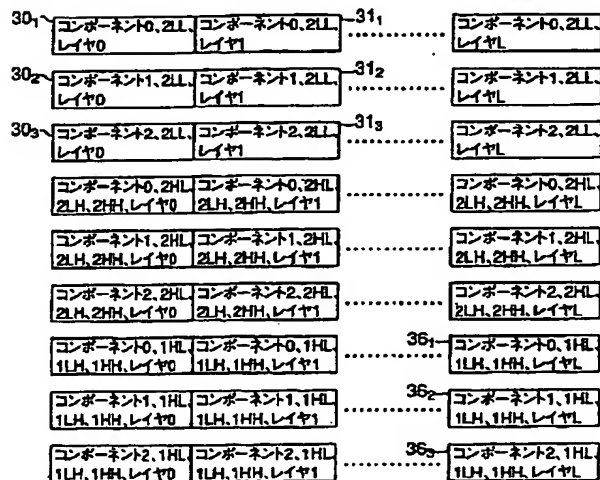 30₁ コンポーネント0、2LL、レイヤ0 コンポーネント0、2LL、レイヤ1 31₁ コンポーネント0、2LL、レイヤL
30₂ コンポーネント1、2LL、レイヤ0 コンポーネント1、2LL、レイヤ1 31₂ コンポーネント1、2LL、レイヤL
30₃ コンポーネント2、2LL、レイヤ0 コンポーネント2、2LL、レイヤ1 31₃ コンポーネント2、2LL、レイヤL
コンポーネント0、2HL、2LH、2HH、レイヤ0 コンポーネント0、2HL、2LH、2HH、レイヤ1 コンポーネント0、2HL、2LH、2HH、レイヤL
コンポーネント1、2HL、2LH、2HH、レイヤ0 コンポーネント1、2HL、2LH、2HH、レイヤ1 コンポーネント1、2HL、2LH、2HH、レイヤL
コンポーネント2、2HL、2LH、2HH、レイヤ0 コンポーネント2、2HL、2LH、2HH、レイヤ1 コンポーネント2、2HL、2LH、2HH、レイヤL
コンポーネント0、1HL、1LH、1HH、レイヤ0 コンポーネント0、1HL、1LH、1HH、レイヤ1 36₁ コンポーネント0、1HL、1LH、1HH、レイヤL
コンポーネント1、1HL、1LH、1HH、レイヤ0 コンポーネント1、1HL、1LH、1HH、レイヤ1 36₂ コンポーネント1、1HL、1LH、1HH、レイヤL
コンポーネント2、1HL、1LH、1HH、レイヤ0 コンポーネント2、1HL、1LH、1HH、レイヤ1 36₃ コンポーネント2、1HL、1LH、1HH、レイヤL